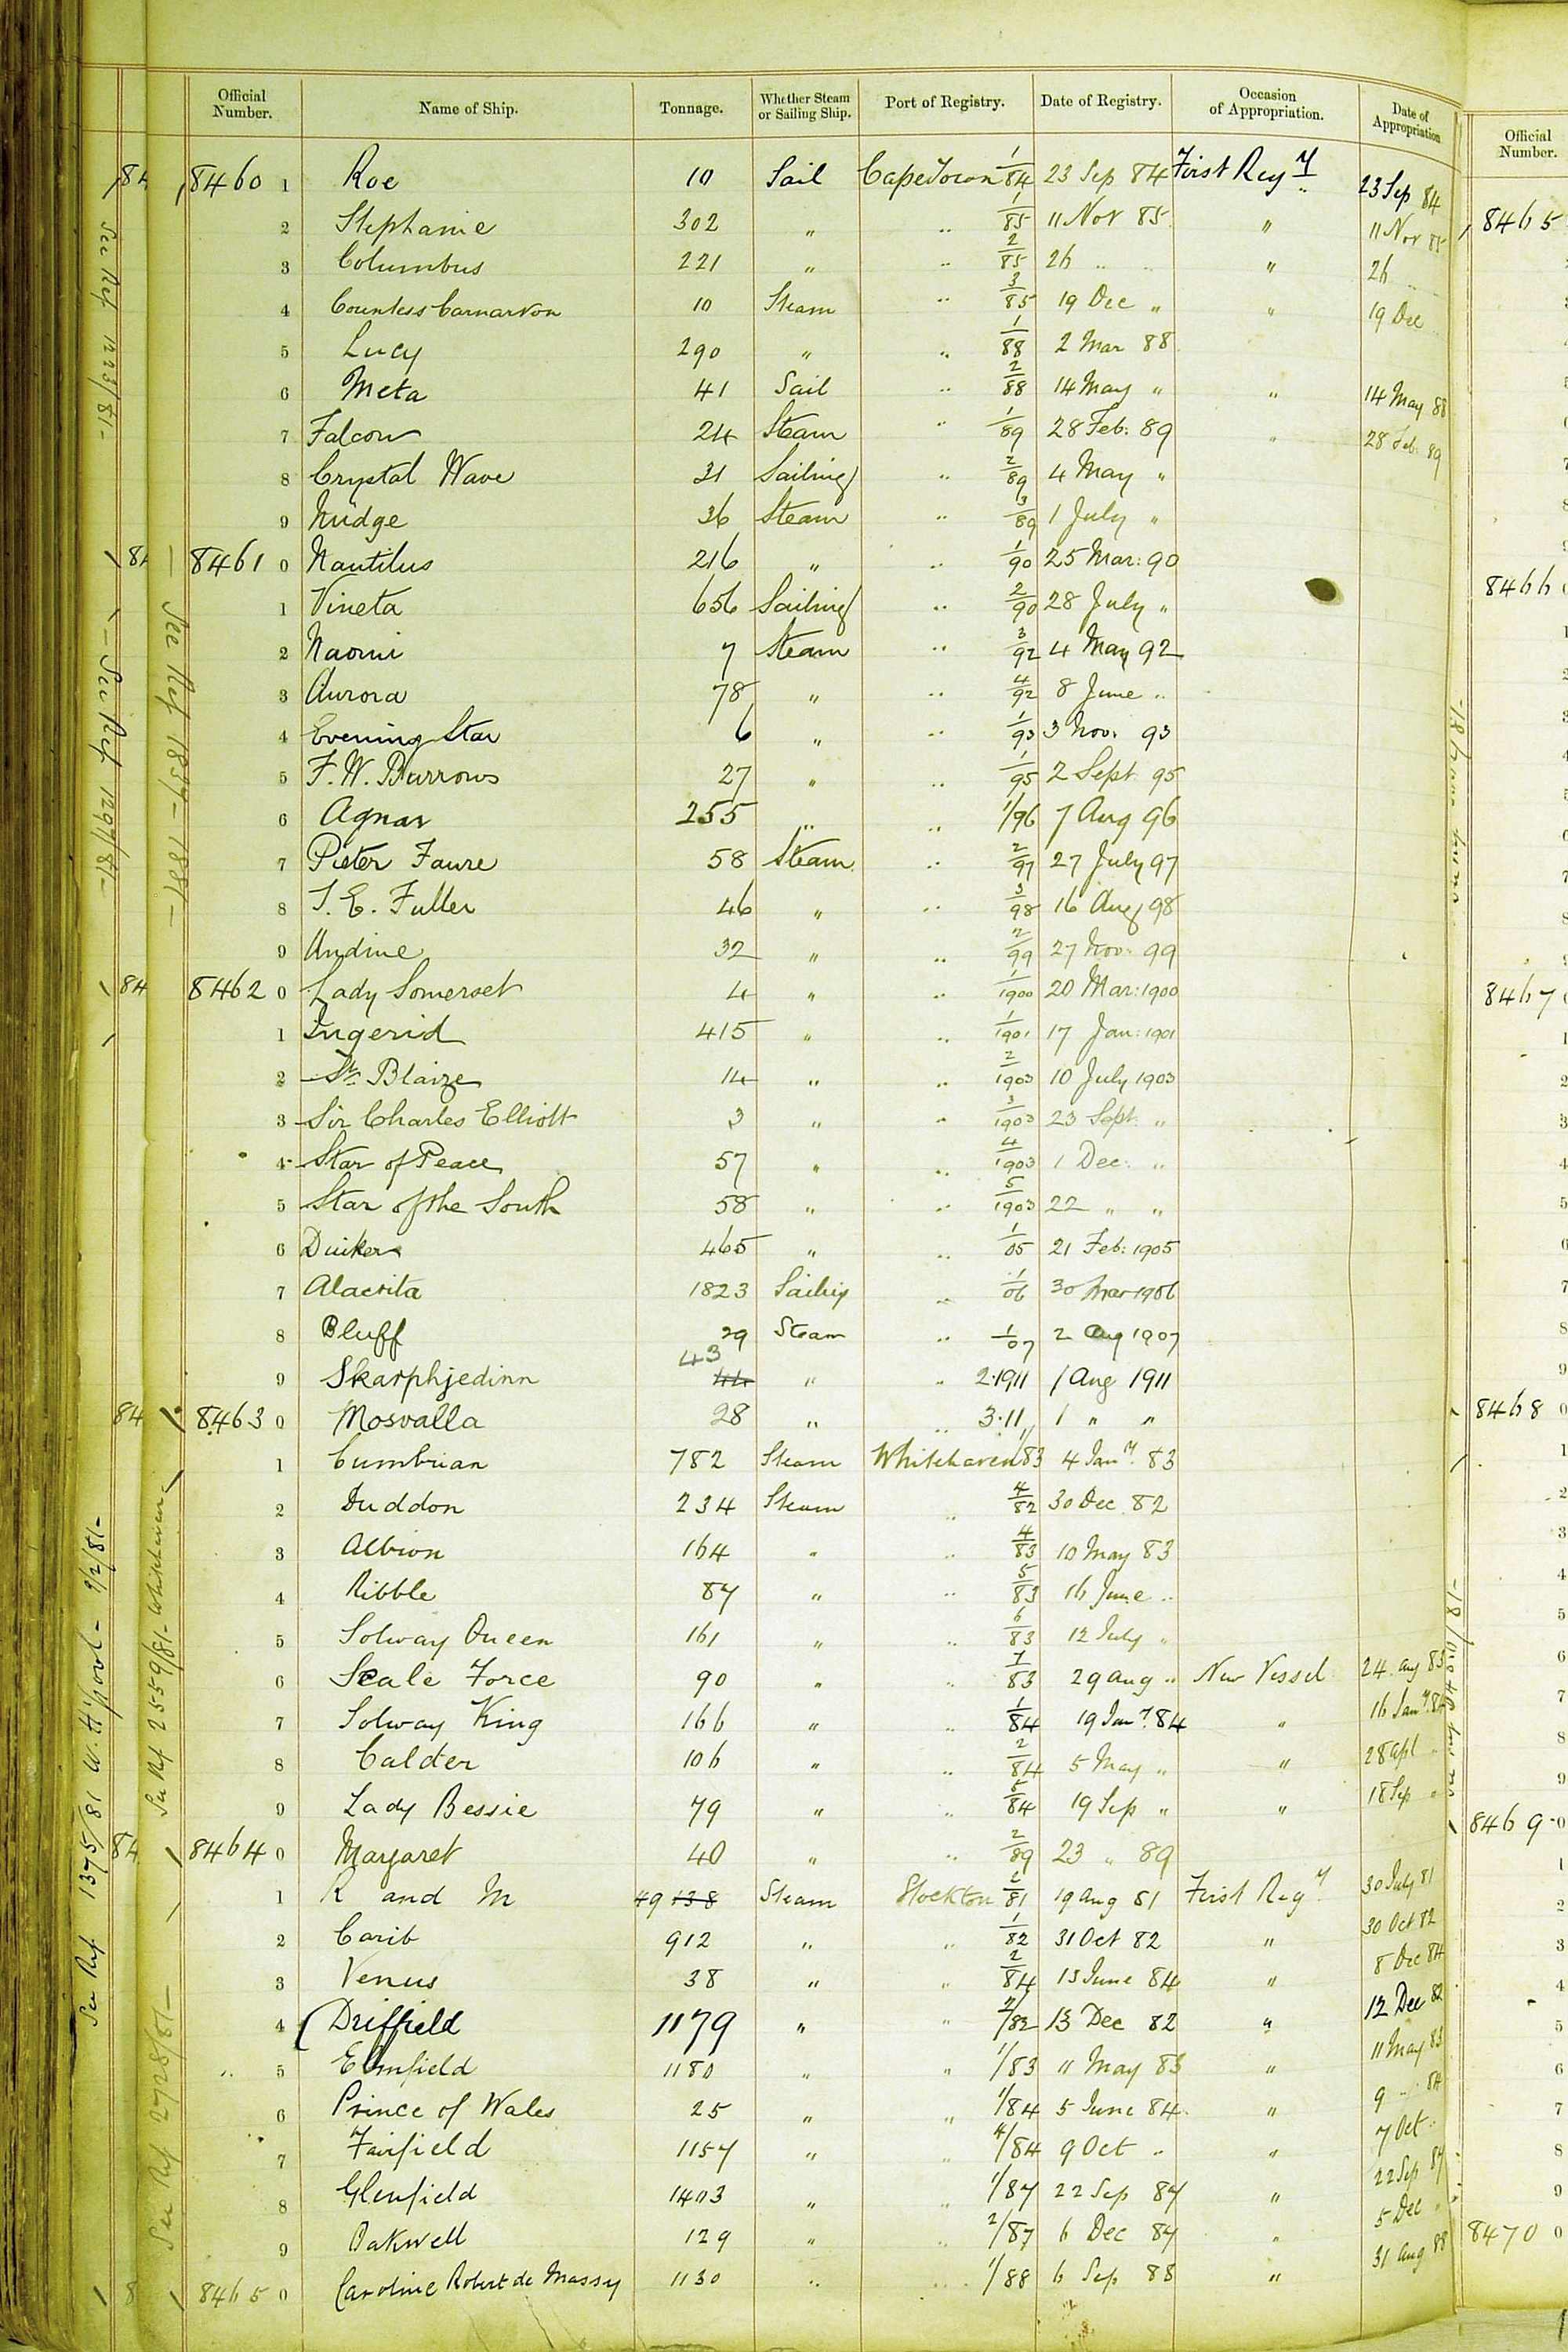 Official Number. Name of Ship. Tonnage. Whether Steam or Sailing Ship. Port of Registry. Date of Registry. Occasion of Appropriation. Date of Appropriation Official Number.
84 8460 1 Roe 10 Sail CapeTown 1/84 23 Sep 84 First Regy 23 Sep 84
2 Stephanie 302 " .. 1/85 11 Nov 85 " 11 Nov 85 8465
3 Columbus 221 " .. 2/85 26 .. .. " 26 ..
4 Countess Carnarvon 10 Steam .. 3/85 19 Dec " " 19 Dec
5 Lucy 290 " .. 1/88 2 Mar 88
6 Meta 41 Sail .. 2/88 14 May " " 14 May 88
7 Falcon 24 Steam .. 1/89 28 Feb: 89 " 28 Feb. 89
8 Crystal Wave 31 Sailing .. 2/89 4 May "
9 Nudge 36 Steam .. 3/89 1 July "
84 8461 0 Nautilus 216 " .. 1/90 25 Mar: 90 8466 0
1 Vineta 656 Sailing .. 2/90 28 July "
2 Naomi 7 Steam .. 3/92 4 May 92
3 Aurora 78 " .. 4/92 8 June ..
4 Evening Star 6 " .. 1/93 3 Nov. 93
5 F. W. Burrows 27 " .. 1/95 2 Sept 95
6 Agnar 255 " .. 1/96 7 Aug 96
7 Pieter Faure 58 Steam .. 2/97 27 July 97
8 T. E. Fuller 46 " .. 3/98 16 Aug 98
9 Undine 32 " .. 2/99 27 Nov: 99
84 8462 0 Lady Somerset 4 " .. 1/1900 20 Mar: 1900 8467 0
1 Ingerid 415 " .. 1/1901 17 Jan: 1901
2 St. Blaize 14 " .. 2/1903 10 July 1903
3 Sir Charles Elliott 3 " .. 3/1903 23 Sept. "
4 Star of Peace 57 " .. 4/1903 1 Dec. "
5 Star of the South 58 " .. 5/1903 22 " "
6 Duiker 465 " .. 1/05 21 Feb: 1905
7 Alacrita 1823 Sailig .. 1/06 30 Mar 1906
8 Bluff 29 Steam .. 1/07 2 Aug 1907
9 Skarphjedinn 43 44 " .. 2.1911 1 Aug 1911
84 8463 0 Mosvalla 28 " .. 3.11 1 " " 8468 0
1 Cumbrian 782 Steam Whitehaven 1/83 4 Jany. 83
2 Duddon 234 Steam .. 4/82 30 Dec. 82
3 Albion 164 " .. 4/83 10 May 83
4 Ribble 87 " .. 5/83 16 June ..
5 Solway Queen 161 " .. 6/83 12 July "
6 Scale Force 90 " .. 7/83 29 Aug .. New Vessel 24 Aug 83
7 Solway King 166 " .. 1/84 19 Jany. 84 " 16 Jany. 84
8 Calder 106 " .. 2/84 5 May " " 28 Apl ..
9 Lady Bessie 79 " .. 5/84 19 Sep " " 18 Sep "
84 8464 0 Margaret 40 " .. 2/89 23 " 89 8469 0
1 R and M 49 138 Steam Stockton 2/81 19 Aug 81 First Regy. 30 July 81
2 Carib 912 " .. 1/82 31 Oct 82 " 30 Oct 82
3 Venus 38 " .. 2/84 13 June 84 " 8 Dec 84
4 Driffield 1179 " .. 2/82 13 Dec 82 " 12 Dec 82
5 Elmfield 1180 " .. 1/83 11 May 83 " 11 May 83
6 Prince of Wales 25 " .. 1/84 5 June 84 " 9 .. 84
7 Fairfield 1157 " .. 4/84 9 Oct .. " 7 Oct ..
8 Glenfield 1403 " .. 1/87 22 Sep 87 " 22 Sep 87
9 Oakwell 129 " .. 2/87 6 Dec 87 " 5 Dec "
8 8465 0 Caroline Robert de Massy 1130 .. .. 1/88 6 Sep 88 " 31 Aug 88 8470 0
See Ref 1223/81-
See Ref 1297/81-
See Ref 1859-1881-
See Ref 1375/81 W. H'pool- 9/2/81-
See Ref 2559/81- Whitehaven
See Ref 2728/81-